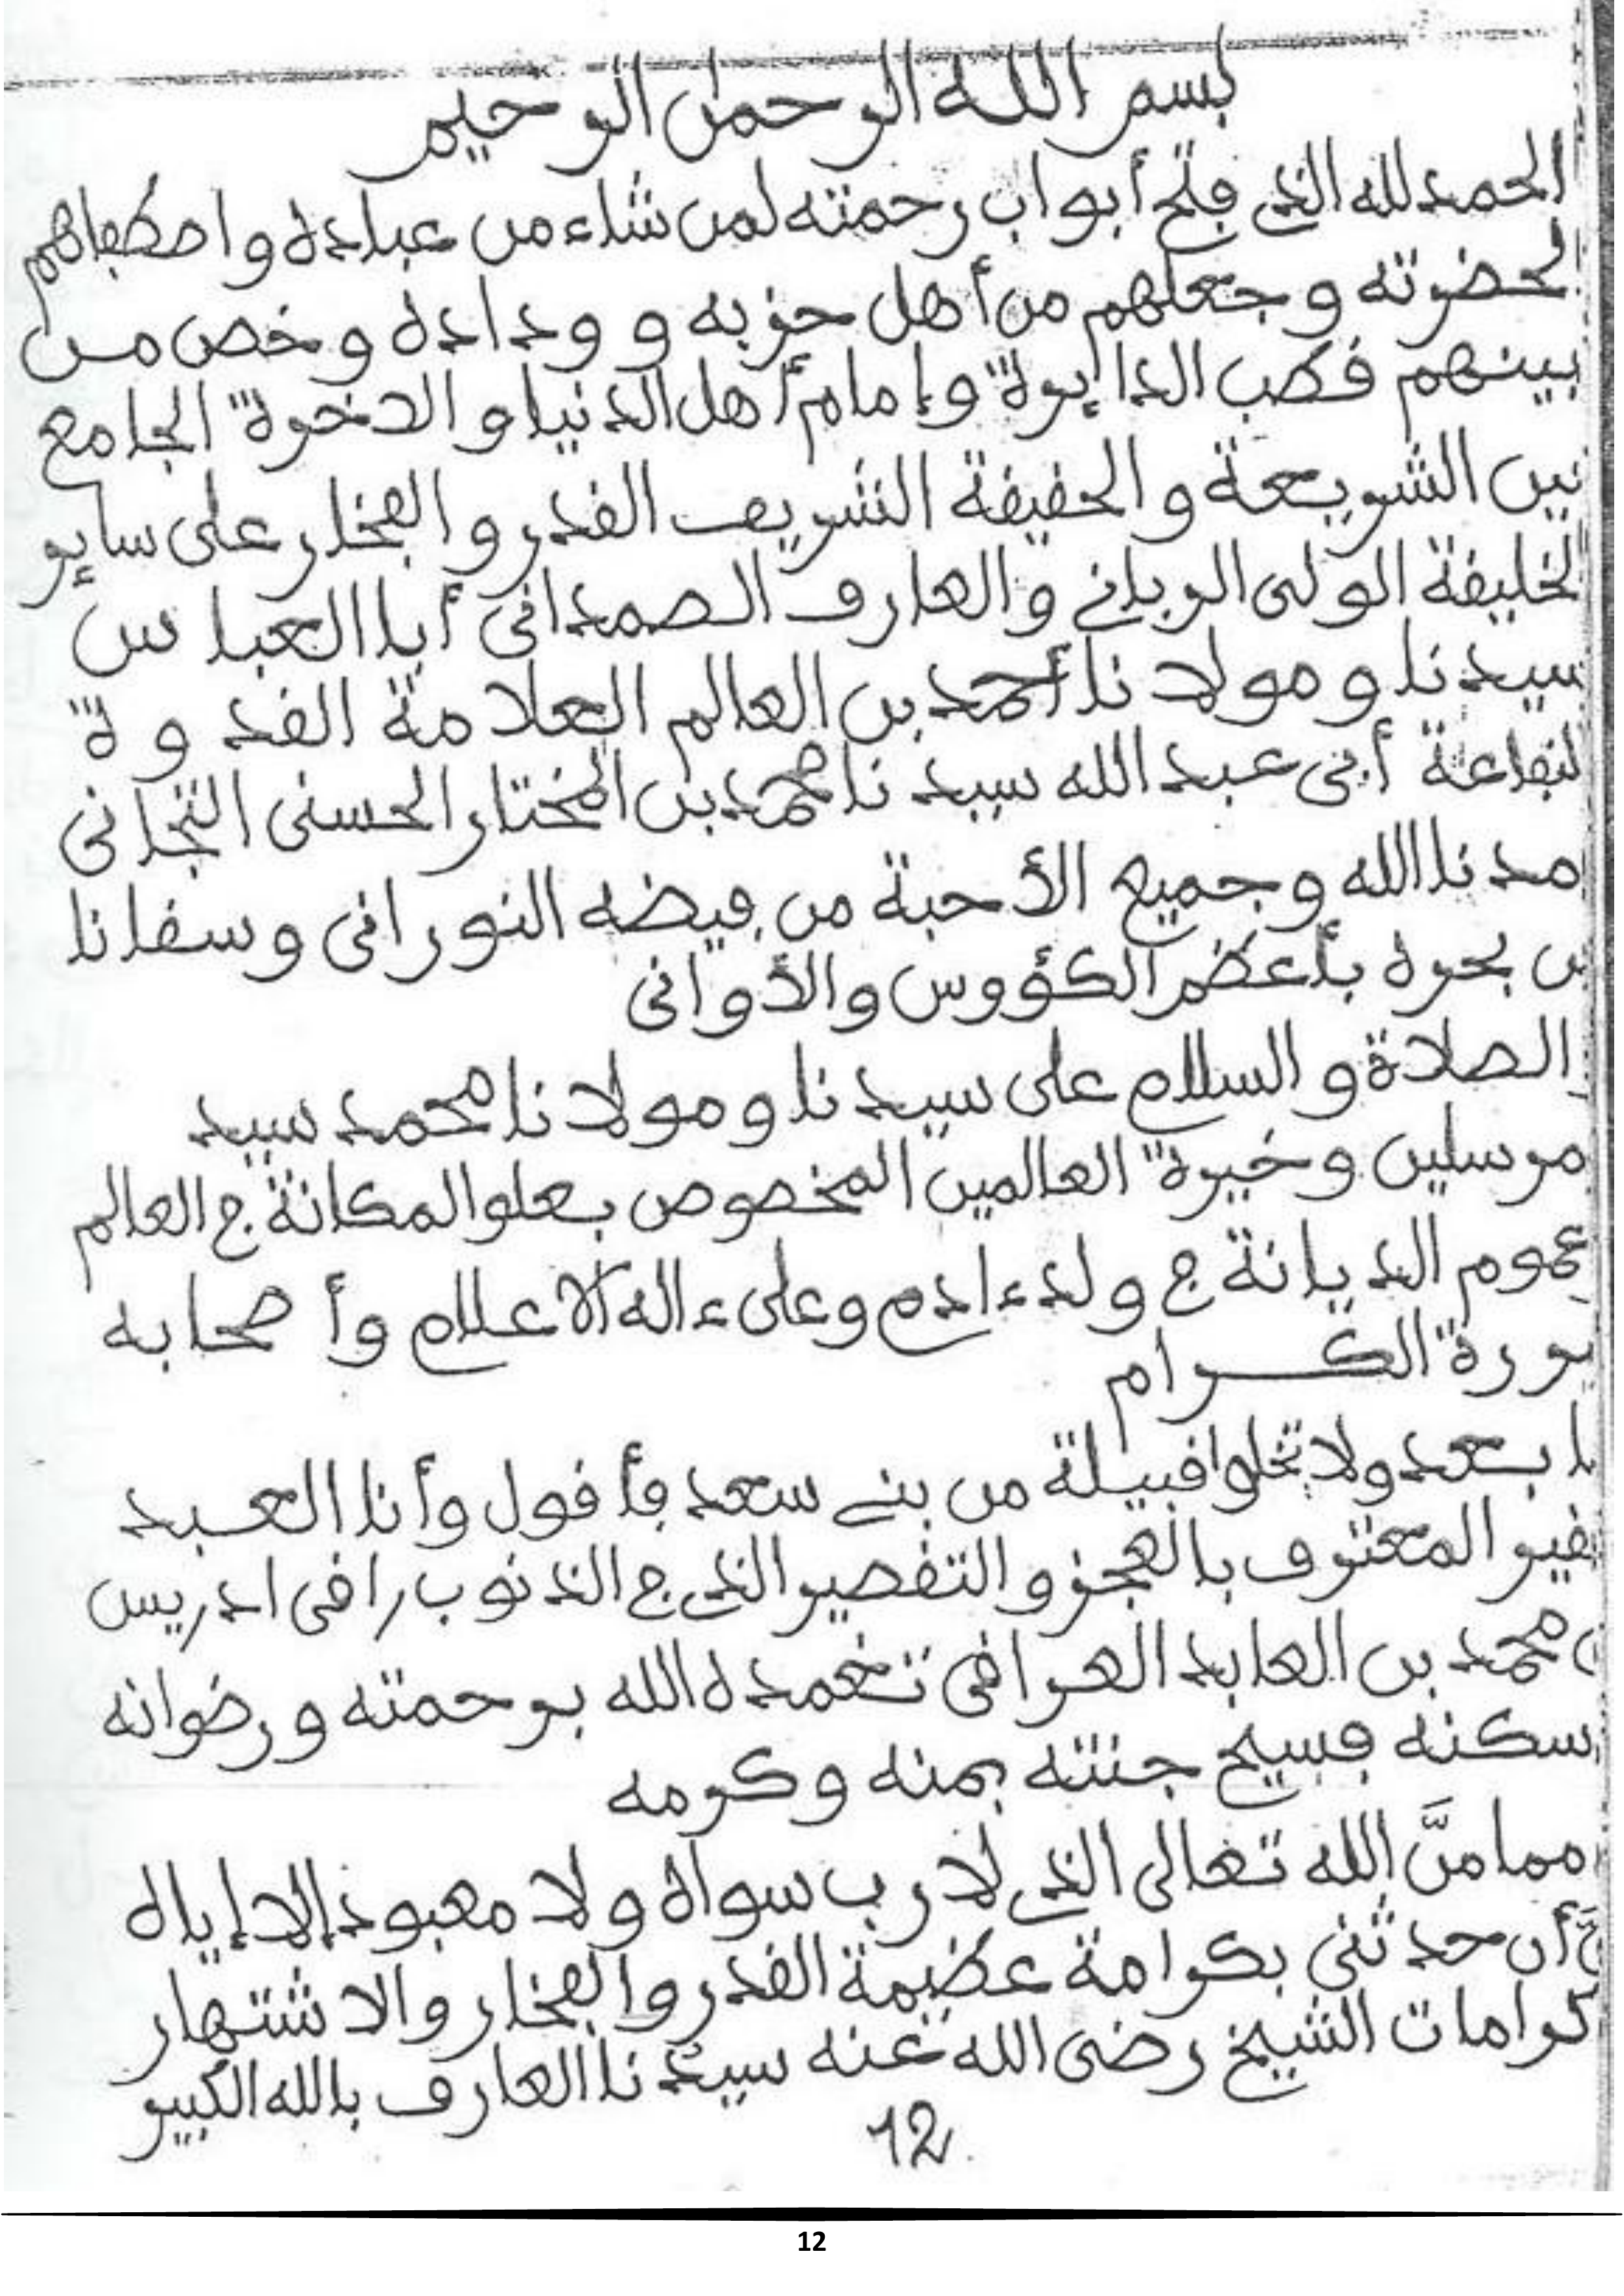 بسم الله الرحمان الرحيم
الحمد لله الذي فتح أبواب رحمته لمن شاء من عباده واصطفاهم
لحضرته وجعلهم من أهل حزبه وودادة وخص من
بينهم قطب الدايرة وإمام أهل الدنيا والاخرة الجامع
بين الشريعة والحقيقة الشريف القدر والفخار على ساير
لخليقة الولى الرباني والعارف الصمدانى أبا العباس
سيدنا ومولانا أحمد بن العالم العلامة القدوة
لنفاعة أبى عبد الله سيدنا محمد بن المختار الحسنى التجانى
مدنا الله وجميع الأحبة من فيضه النورانى وسقانا
من بحره بأعظم الكؤوس والأوانى
الصلاة والسلام على سيدنا ومولانا محمد سيد
مرسلين وخيرة العالمين المخصوص بعلو المكانة في العالم
عموم الديانة في ولد ءادم وعلى ءاله الاعلام وأصحابه
بررة الكرام
ما بعد ولا تخلوا قبيلة من بني سعد فأقول وأنا العبد
لفقير المعترف بالعجز والتقصير الذي في الذنوب راقى ادريس
بن محمد بن العابد العراقى تغمده الله برحمته ورضوانه
اسكنه فسيح جنته بمنه وكرمه
مما منَّ الله تعالى الذي لا رب سواه ولا معبود إلا إياه
أن حدثنى بكرامة عظيمة القدر والفخار والاشتهار
كرامات الشيخ رضى الله عنه سيدنا العارف بالله الكبير
12
12